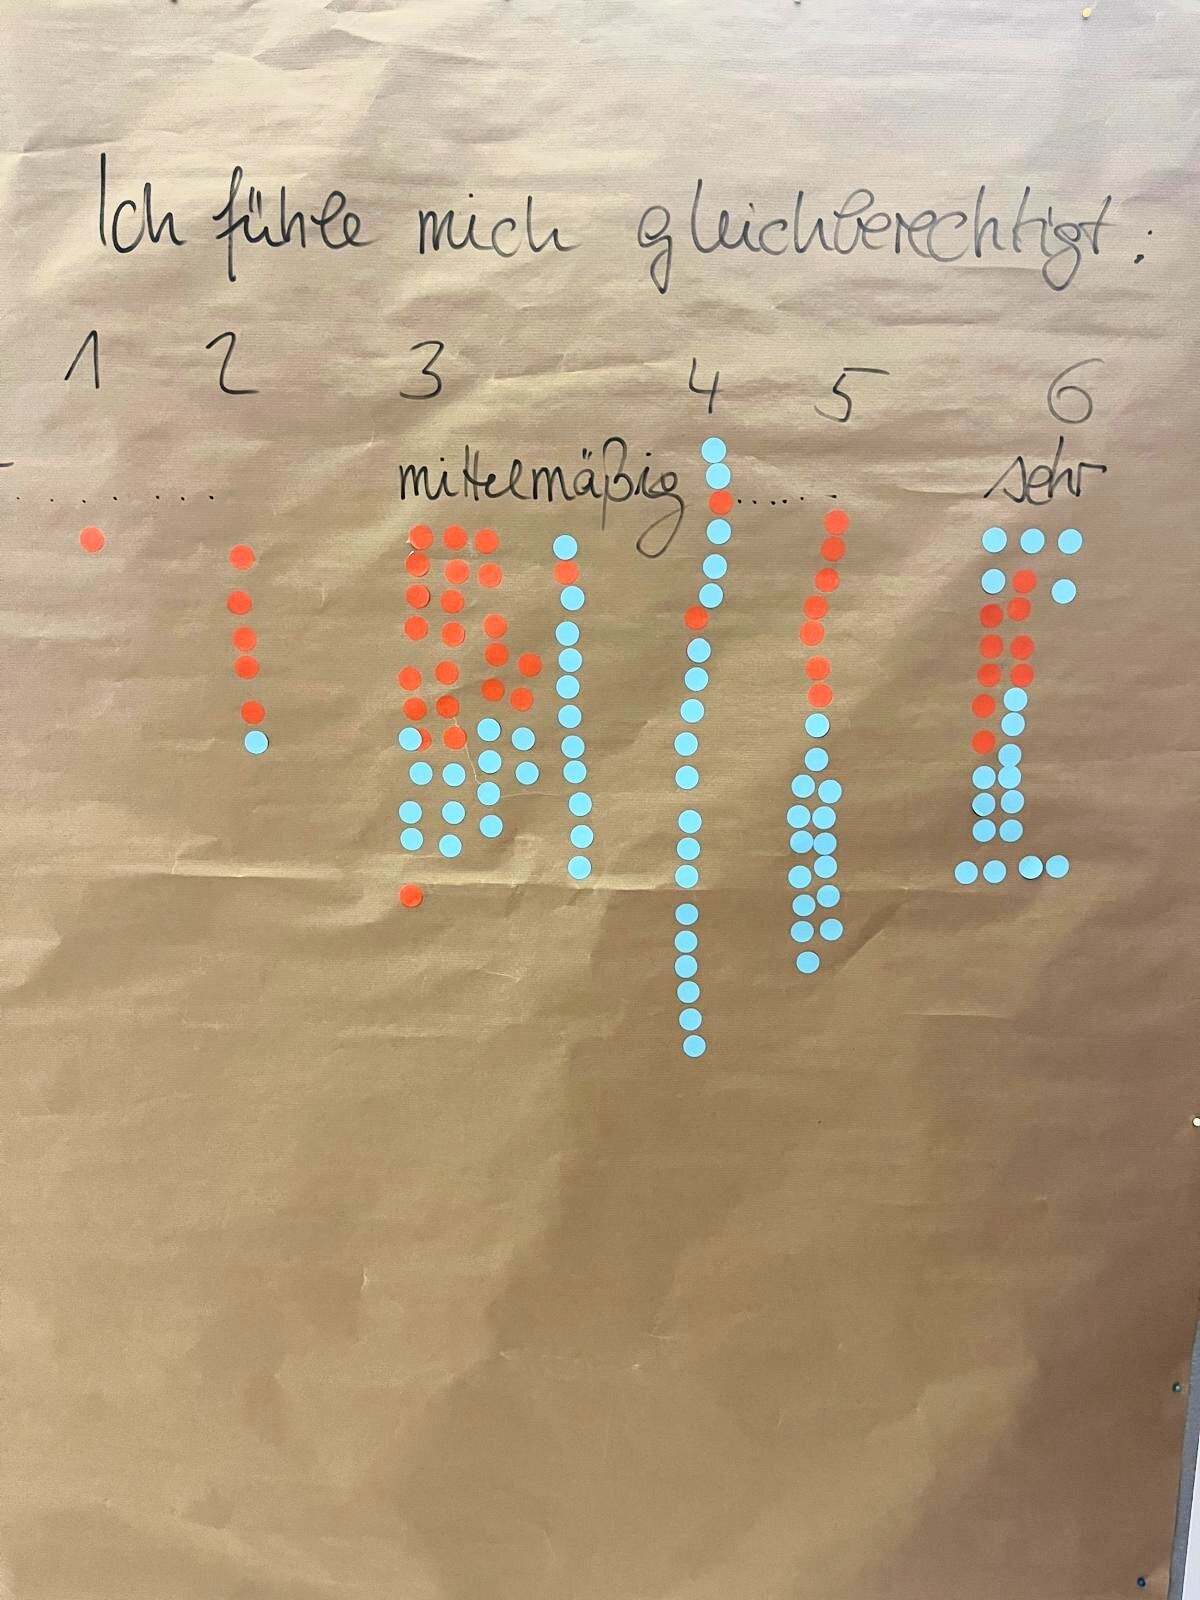 Ich fühle mich gleichberechtigt:
1 2 3 4 5 6
......... mittelmäßig ...... sehr